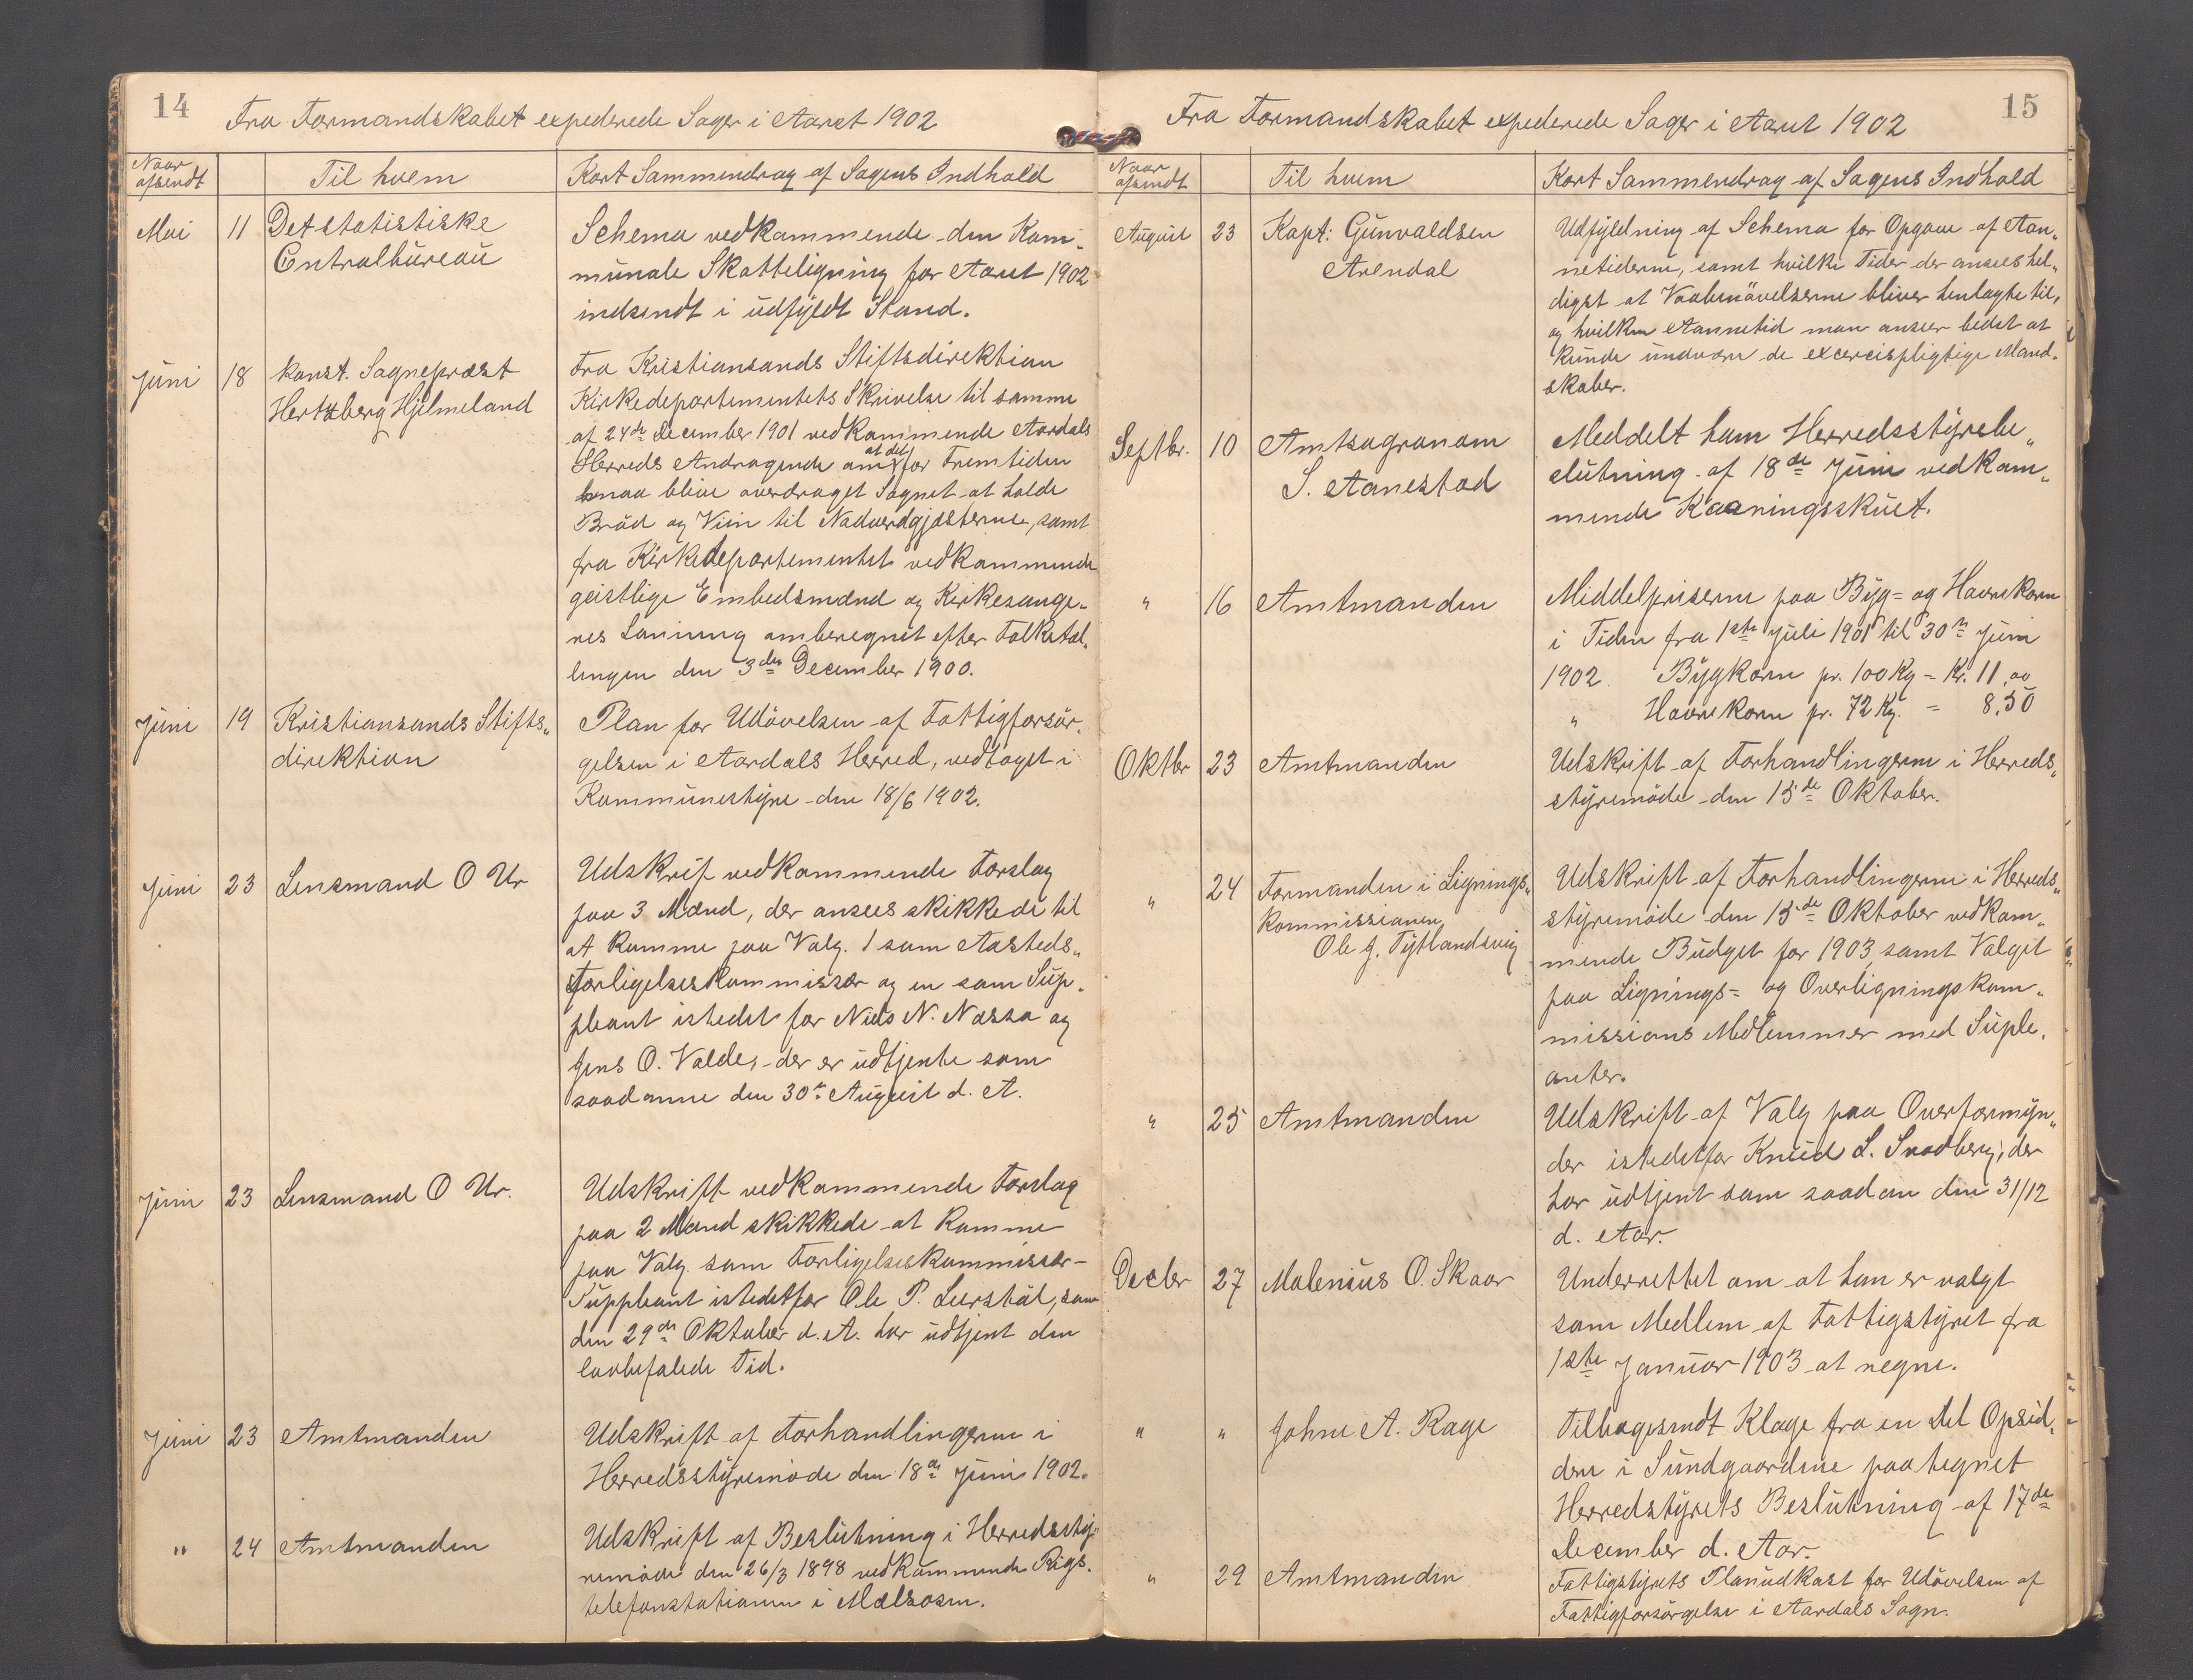 14
Fra Formandskabet expederede Sager i Aaret 1902
Naar afsendt
Til hvem
Kort Sammendrag af Sagens Indhold
Mai 11 Det statistiske
Centralbureau
Schema vedkommende den Kom-
munale Skatteligning for Aaret 1902
indsendt i udfyldt Stand.
Juni 18 konst. Sogneprest
Hertzberg Hjelmeland
Fra Kristiansands Stiftsdirektion
Kirkedepartementets Skrivelse til samme
af 24de December 1901 vedkommende Aardals
Herreds Andragende om at det for Fremtiden
maa blive overdraget Sognet at holde
Bröd og Viin til Nadverdgjæsterne, samt
fra Kirkedepartementet vedkommende
geistlige Embedsmænd og Kirkesange-
res Lönning omberegnet efter Folketæl-
lingen den 3die December 1900.
Juni 19 Kristiansands Stifts-
direktion
Plan for Udövelsen af Fattigforsör-
gelsen i Aardals Herred, vedtaget i
Kommunestyre den 18/6 1902.
Juni 23 Lensmand O Ur
Udskrif vedkommende Forslag
paa 3 Mænd, der ansees skikkede til
at komme paa Valg. 1 som Aasteds-
Forligelseskommissær og en som Sup-
pleant istedet for Niels N. Nessa og
Jens O. Valde, der er udtjente som
saadanne den 30te August d. A.
Juni 23 Lensmand O Ur.
Udskrift vedkommende Forslag
paa 2 Mænd skikkede at komme
paa Valg som Forligelseskommissær-
Suppleant istedetfor Ole P. Leirstöl, som
den 29de Oktober d. A. har udtjent den
lovbefalede Tid.
Juni 23 Amtmanden
Udskrift af Forhandlingerne i
Herredsstyremöde den 18de Juni 1902.
" 24 Amtmanden
Udskrift af Beslutning i Herredssty-
remöde den 26/3 1898 vedkommende Rigs-
telefonstationen i Mælsosen.
15
Fra Formandskabet expederede Sager i Aaret 1902
Naar afsendt
Til hvem
Kort Sammendrag af Sagens Indhold
August 23 Kapt: Gunvaldsen
Arendal
Udfyldning af Schema for Opgave af Aan-
netiderne, samt hvilke Tider der ansees hel-
digst at Vaabenövelserne bliver henlagte til,
og hvilken Aannetid man anseer bedst at
kunde undvære de excercispligtige Mand-
skaber.
Septbr. 10 Amtsagronom
S. Aanestad
Meddelt ham Herredsstyrebe-
slutning af 18de Juni vedkom-
mende Kaaringsskuet.
" 16 Amtmanden
Middelpriserne paa Byg= og Havrekorn
i Tiden fra 1ste Juli 1901 til 30te Juni
1902. Bygkorn pr. 100 Kg = Kr. 11,00
" Havrekorn pr. 72 Kg. = 8,50
Oktbr 23 Amtmanden
Udskrift af Forhandlingerne i Herreds-
styremöde den 15de Oktober.
" 24 Formanden i Lignings-
kommissionen
Ole J. Tytlandsvig
Udskrift af Forhandlingerne i Herreds-
styremöde den 15de Oktober vedkom-
mende Budget for 1903, samt Valget
paa Lignings= og Overligningskom-
missions Medlemmer med Suple-
anter.
" 25 Amtmanden
Udskrift af Valg paa Overformyn-
der istedetfor Knud L. Svadberg, der
har udtjent som saadan den 31/12
d. Aar.
Decbr 27 Malenius O. Skaar
Underrettet om at han er valgt
som Medlem af Fattigstyret fra
1ste Januar 1903 at regne.
" " Johne A. Rage
Tilbagesendt Klage fra en Del Opsid-
dere i Sundgaardene paategnet
Herredstyrets Beslutning af 17de
December d. Aar.
" 29 Amtmanden
Fattigstyrets Planudkast for Udövelsen af
Fattigforsörgelse i Aardals Sogn.